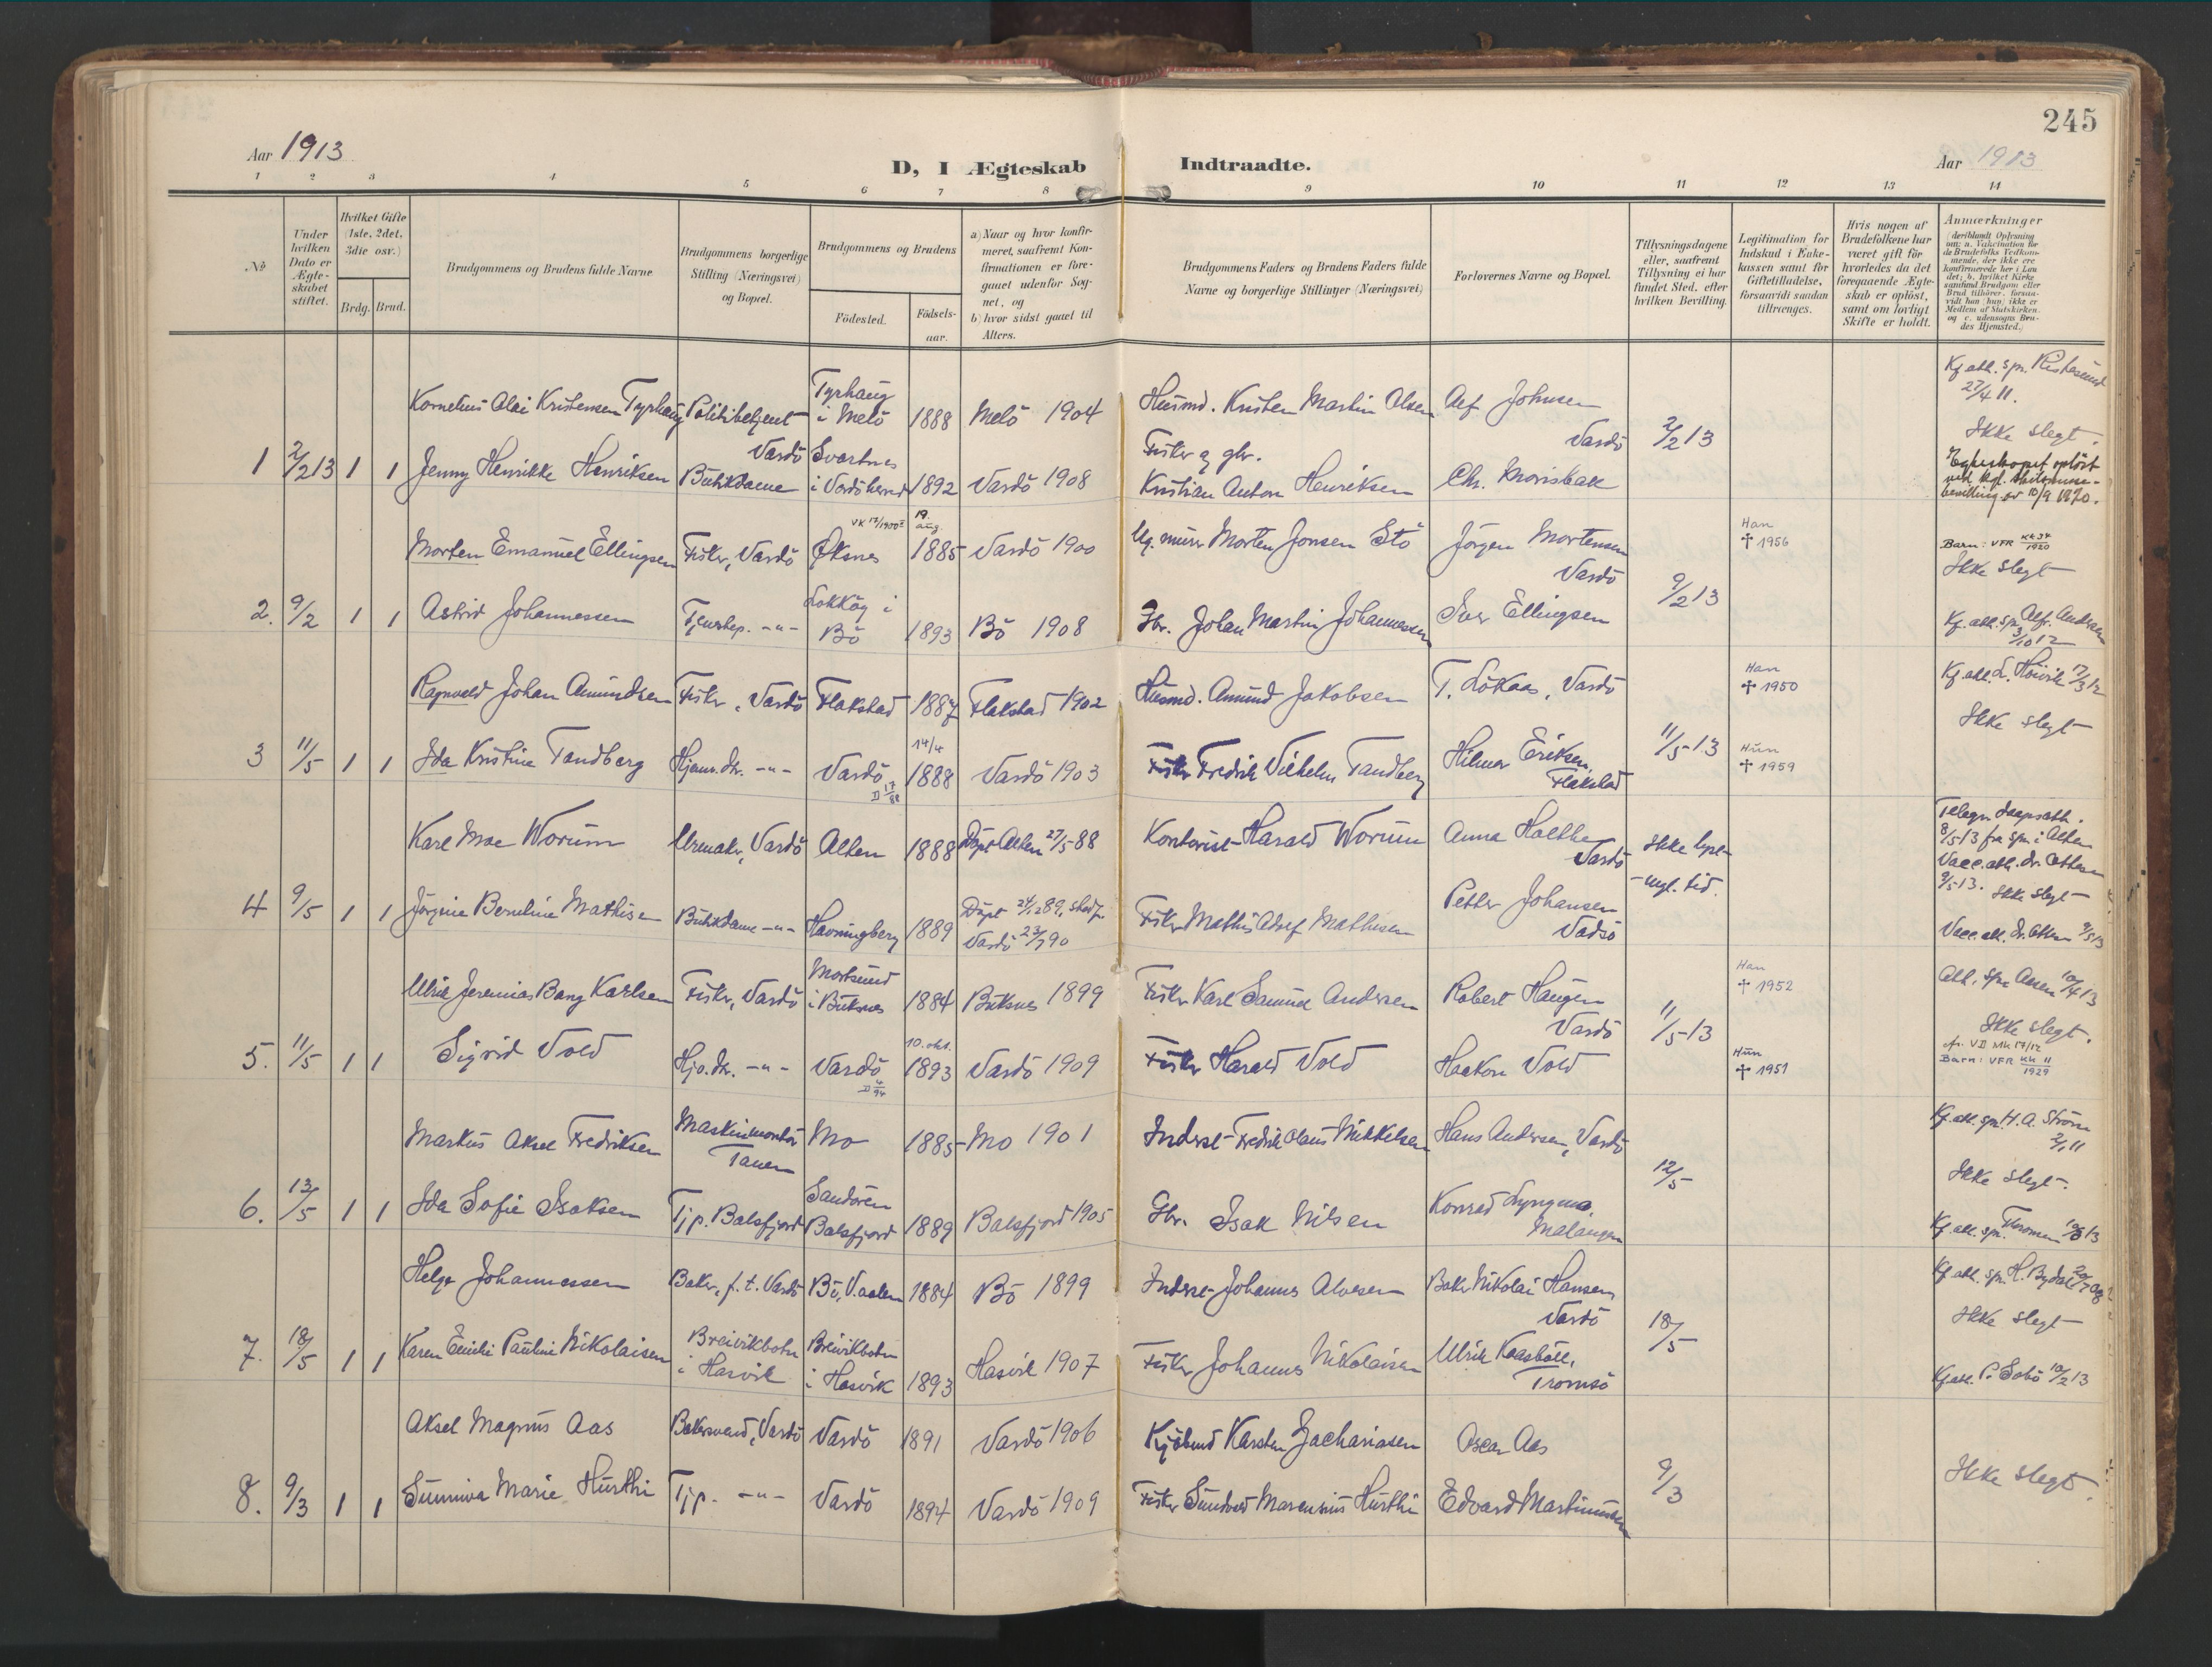 245
Aar 1913
D, I Ægteskab Indtraadte.
Aar 1913
1 2 3 4 5 6 7 8 9 10 11 12 13 14
№
Under hvilken Dato er Ægteskabet stiftet.
Hvilket Gifte (1ste, 2det, 3die osv.)
Brdg. Brud.
Brudgommens og Brudens fulde Navne
Brudgommens borgerlige Stilling (Næringsvei) og Bopæl.
Brudgommens og Brudens
Födested.
Födselsaar.
a) Naar og hvor konfirmeret, saafremt Konfirmationen er foregaaet udenfor Sognet, og
b) hvor sidst gaaet til Alters.
Brudgommens Faders og Brudens Faders fulde Navne og borgerlige Stillinger (Næringsvei)
Forlovernes Navne og Bopæl.
Tillysningsdagene eller, saafremt Tillysning ei har fundet Sted, efter hvilken Bevilling.
Legitimation for Indskud i Enkekassen samt for Giftetilladelse, forsaavidt saadan tiltrænges.
Hvis nogen af Brudefolkene har været gift för hvorledes da det foregaaende Ægteskab er oplöst, samt om lovligt Skifte er holdt.
Anmærkninger
(deriblandt Oplysning om: a. Vakcination för de Brudefolks Vedkommende, der ikke ere konfirmerede her i Landet; b. hvilket Kirkesamfund Brudgom eller Brud tilhörer, forsaavidt han (hun) ikke er Medlem af Statskirken, og c. udensogns Brudes Hjemsted.)
Kornelius Olai Kristensen Tyrhaug Politibetjent Tyrhaug i Melö 1888 Melö 1904 Husmd. Kristen Martin Olsen Alf Johnsen
Kf att. spr.
27/4 11.
Vardö Vardö 2/2 13 Ikke slegt.
1 2/2 13 1 1 Jenny Henrikke Henriksen Butikdame Svartnes i Vardö herred 1892 Vardö 1908 Fisker og gbr.
Kristian Anton Henriksen Chr. Morisbak
Egteskapet oplöst
ved kgl.
bevilling av 10/9
VK 17/1900 19. aug.
Morten Emanuel Ellingsen Fisker, Vardö Öksnes 1885 Vardö 1900 Ug. murer Morten Jonsen Stö Jörgen Mortensen
Vardö
Han
✝ 1956
Barn: VFR KK 37/1920
Ikke slegt
2. 9/2 1 1 Astrid Johannessen Tjenestep. -"- i Bö 1893 Bö 1908 Gbr. Johan Martin Johannessen Iver Ellingsen 9/2 13
Kf. att. spr. Alfr. Andersen
3/10 12
Ragnvald Johan Amundsen Fisker, Vardö Flakstad 1887 Flakstad 1902 Husmd. Amund Jakobsen T. Lökaas, Vardö
Han
✝ 1950
Kf att. L. Höivik 17/3 12
Ikke slegt
14/4
3 11/5 1 1 Ida Kristine Tandberg Hjemv. dtr. -"- Vardö 1888 Vardö 1903 Fisker Fredrik Vilhelm Tandberg Hilmer Eriksen, Flakstad 11/5 13
D 17/88
Hun
✝ 1959
Karl Moe Worum Urmaker, Vardö Alten 1888 Döpt Alten 27/5 88 Kontorist Harald Worum Anna Holthe
Vardö
Ikke
Telegr. daapsatt.
8/5 13 fra spr. i Alten
Vacc. att. dr.
9/5 13. Ikke slegt
4 9/5 1 1 Jörgine Berntine Mathisen Butikdame -"- Havningberg 1889 Döpt 24/12 89, stadf.
Vardö 23/7 90
Fisker Mathis Adolf Mathisen Petter Johansen
Vadsö
Vacc. att. dr. 9/5 13
Ulrik Jeremias Bang Karlsen Fisker, Vardö Mortsund i Buksnes 1884 Buksnes 1899 Fisker Karl Samuel Andersen Robert Haugen
Vardö
Han
✝ 1952
Att. spr. Aasen 10/4 13
Ikke slegt.
10. okt.
5. 11/5 1 1 Sigrid Vold Hjv. dtr. -"- Vardö 1893 Vardö 1909 Fisker Harald Vold Haakon Vold 11/5 13
D 4/94
Hun
✝ 1951
cfr. VD MK 17/12
Barn: VFR KK 11/1929
Markus Aksel Fredriksen Maskinmontör Tanen Mo 1885 Mo 1901 Inderst Fredrik Olaus Mikkelsen Hans Andersen, Vardö
Kf. att. spr. H.A. Ström
2/1 11
Ikke slegt.
6. 12/5 1 1 Ida Sofie Isaksen Tjp. Balsfjord Sandören Balsfjord 1889 Balsfjord 1905 Gbr. Isak Nilsen Konrad Lyngmo, Malangen 12/5
Kf. att. spr.
Helge Johannessen Baker, f. t. Vardö Bö, V.aalen 1884 Bö 1899 Inderst Johannes Alvesen Baker Nikolai Hansen
Vardö
Kf att. spr.
Ikke slegt
7. 18/5 1 1 Karen Emilie Pauline Nikolaisen Breivikbotn i Hasvik Breivikbotn i Hasvik 1893 Hasvik 1907 Fisker Johannes Nikolaisen Ulrik Kaasböll, Tromsö 18/5
Kf att. P. Solvö 10/2 13
Aksel Magnus Aas Bakersvend, Vardö Vardö 1891 Vardö 1906 Kjöbmd Karsten Zachariasen Oscar Aas
8. 9/3 1 1 Sunniva Marie Hurthi Tjp. -"- Vardö 1894 Vardö 1909 Fisker Sundved Marensius Hurthi Edvard Martinussen 9/3
Ikke slegt.